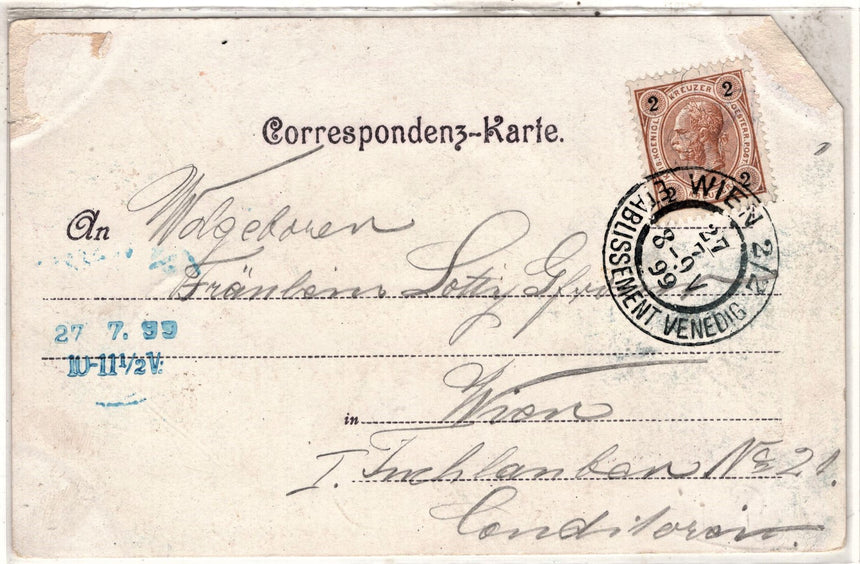 Correspondenz-Karte.
2 KREUZER 2
OESTERR. POST.
2 2
WIEN 2/2
27 7 99
8-9 V
ETABLISSEMENT VENEDIG
An Wolgeboren
Fräulein Lotty
27 7. 99
10-11½V.
in Wien
I. Tuchlauben No 21.
Conditorei.